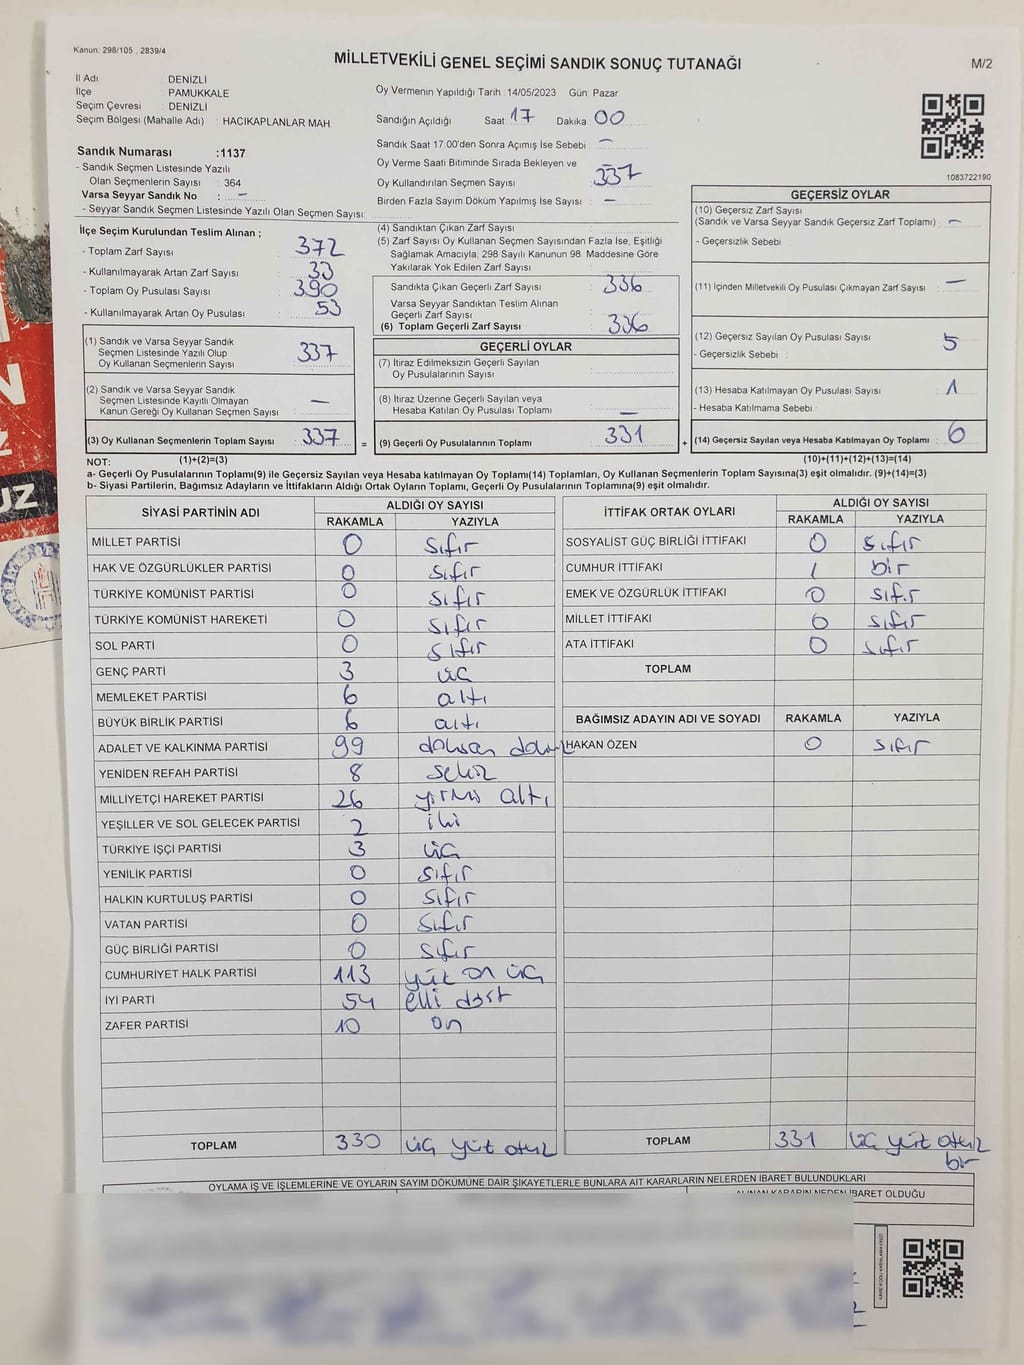 Kanun: 298/105 , 2839/4
MİLLETVEKİLİ GENEL SEÇİMİ SANDIK SONUÇ TUTANAĞI
M/2
İl Adı : DENİZLİ
İlçe : PAMUKKALE
Seçim Çevresi : DENİZLİ
Seçim Bölgesi (Mahalle Adı) : HACIKAPLANLAR MAH.
Sandık Numarası :1137
- Sandık Seçmen Listesinde Yazılı
Olan Seçmenlerin Sayısı : 364
Varsa Seyyar Sandık No : –
- Seyyar Sandık Seçmen Listesinde Yazılı Olan Seçmen Sayısı:
Oy Vermenin Yapıldığı Tarih :14/05/2023 Gün: Pazar
Sandığın Açıldığı Saat: 17 Dakika : 00
Sandık Saat 17:00'den Sonra Açımış İse Sebebi : –
Oy Verme Saati Bitiminde Sırada Bekleyen ve
Oy Kullandırılan Seçmen Sayısı : 337
Birden Fazla Sayım Döküm Yapılmış İse Sayısı : –
1083722190
İlçe Seçim Kurulundan Teslim Alınan ;
- Toplam Zarf Sayısı : 372
- Kullanılmayarak Artan Zarf Sayısı : 33
- Toplam Oy Pusulası Sayısı : 390
- Kullanılmayarak Artan Oy Pusulası : 53
(1) Sandık ve Varsa Seyyar Sandık
Seçmen Listesinde Yazılı Olup
Oy Kullanan Seçmenlerin Sayısı : 337
(2) Sandık ve Varsa Seyyar Sandık
Seçmen Listesinde Kayıtlı Olmayan
Kanun Gereği Oy Kullanan Seçmen Sayısı : –
(3) Oy Kullanan Seçmenlerin Toplam Sayısı : 337
(4) Sandıktan Çıkan Zarf Sayısı :
(5) Zarf Sayısı Oy Kullanan Seçmen Sayısından Fazla İse, Eşitliği
Sağlamak Amacıyla; 298 Sayılı Kanunun 98. Maddesine Göre
Yakılarak Yok Edilen Zarf Sayısı :
Sandıkta Çıkan Geçerli Zarf Sayısı : 336
Varsa Seyyar Sandıktan Teslim Alınan
Geçerli Zarf Sayısı :
(6) Toplam Geçerli Zarf Sayısı : 336
GEÇERLİ OYLAR
(7) İtiraz Edilmeksizin Geçerli Sayılan
Oy Pusulalarının Sayısı :
(8) İtiraz Üzerine Geçerli Sayılan veya
Hesaba Katılan Oy Pusulası Toplamı : –
= (9) Geçerli Oy Pusulalarının Toplamı : 331
GEÇERSİZ OYLAR
(10) Geçersiz Zarf Sayısı
(Sandık ve Varsa Seyyar Sandık Geçersiz Zarf Toplamı) : –
- Geçersizlik Sebebi :
(11) İçinden Milletvekili Oy Pusulası Çıkmayan Zarf Sayısı : –
(12) Geçersiz Sayılan Oy Pusulası Sayısı : 5
- Geçersizlik Sebebi :
(13) Hesaba Katılmayan Oy Pusulası Sayısı : 1
- Hesaba Katılmama Sebebi :
+ (14) Geçersiz Sayılan veya Hesaba Katılmayan Oy Toplamı : 6
NOT: (1)+(2)=(3)
(10)+(11)+(12)+(13)=(14)
a- Geçerli Oy Pusulalarının Toplamı(9) ile Geçersiz Sayılan veya Hesaba katılmayan Oy Toplamı(14) Toplamları, Oy Kullanan Seçmenlerin Toplam Sayısına(3) eşit olmalıdır. (9)+(14)=(3)
b- Siyasi Partilerin, Bağımsız Adayların ve İttifakların Aldığı Ortak Oyların Toplamı, Geçerli Oy Pusulalarının Toplamına(9) eşit olmalıdır.
SİYASİ PARTİNİN ADI ALDIĞI OY SAYISI
RAKAMLA YAZIYLA
MİLLET PARTİSİ 0 sıfır
HAK VE ÖZGÜRLÜKLER PARTİSİ 0 sıfır
TÜRKİYE KOMÜNİST PARTİSİ 0 sıfır
TÜRKİYE KOMÜNİST HAREKETİ 0 sıfır
SOL PARTİ 0 sıfır
GENÇ PARTİ 3 üç
MEMLEKET PARTİSİ 6 altı
BÜYÜK BİRLİK PARTİSİ 6 altı
ADALET VE KALKINMA PARTİSİ 99 doksan
YENİDEN REFAH PARTİSİ 8 sekiz
MİLLİYETÇİ HAREKET PARTİSİ 26 yirmi altı
YEŞİLLER VE SOL GELECEK PARTİSİ 2 iki
TÜRKİYE İŞÇİ PARTİSİ 3 üç
YENİLİK PARTİSİ 0 sıfır
HALKIN KURTULUŞ PARTİSİ 0 sıfır
VATAN PARTİSİ 0 sıfır
GÜÇ BİRLİĞİ PARTİSİ 0 sıfır
CUMHURİYET HALK PARTİSİ 113 yüz on üç
İYİ PARTİ 54 elli dört
ZAFER PARTİSİ 10 on
TOPLAM 330 üç yüz otuz
İTTİFAK ORTAK OYLARI ALDIĞI OY SAYISI
RAKAMLA YAZIYLA
SOSYALİST GÜÇ BİRLİĞİ İTTİFAKI 0 sıfır
CUMHUR İTTİFAKI 1 bir
EMEK VE ÖZGÜRLÜK İTTİFAKI 0 sıfır
MİLLET İTTİFAKI 0 sıfır
ATA İTTİFAKI 0 sıfır
TOPLAM
BAĞIMSIZ ADAYIN ADI VE SOYADI RAKAMLA YAZIYLA
HAKAN ÖZEN 0 sıfır
TOPLAM 331 üç yüz otuz
bir
OYLAMA İŞ VE İŞLEMLERİNE VE OYLARIN SAYIM DÖKÜMÜNE DAİR ŞİKAYETLERLE BUNLARA AİT KARARLARIN NELERDEN İBARET BULUNDUKLARI
ALINAN KARARIN NEDEN İBARET OLDUĞU